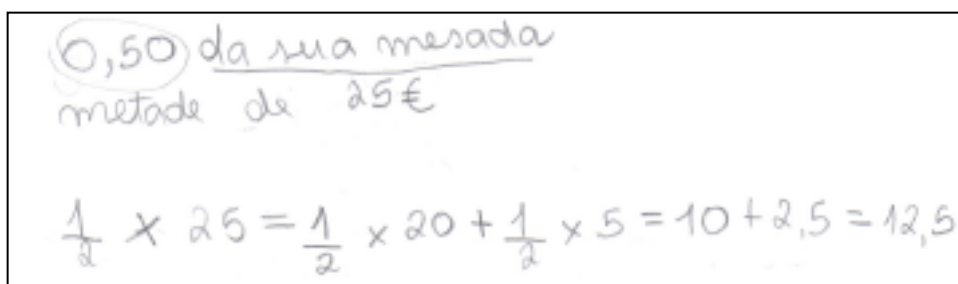 0,50 da sua mesada
metade de 25€
1/2 × 25 = 1/2 × 20 + 1/2 × 5 = 10 + 2,5 = 12,5